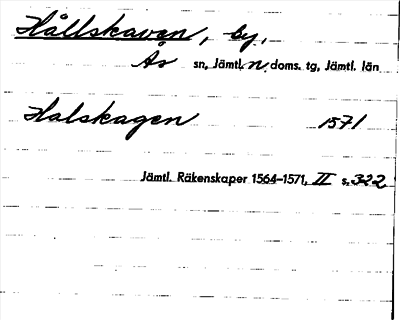 Hållskaven, by,
Ås sn, Jämtl. n. doms. tg, Jämtl. län
Halskagen 1571
Jämtl. Räkenskaper 1564–1571, II s. 322